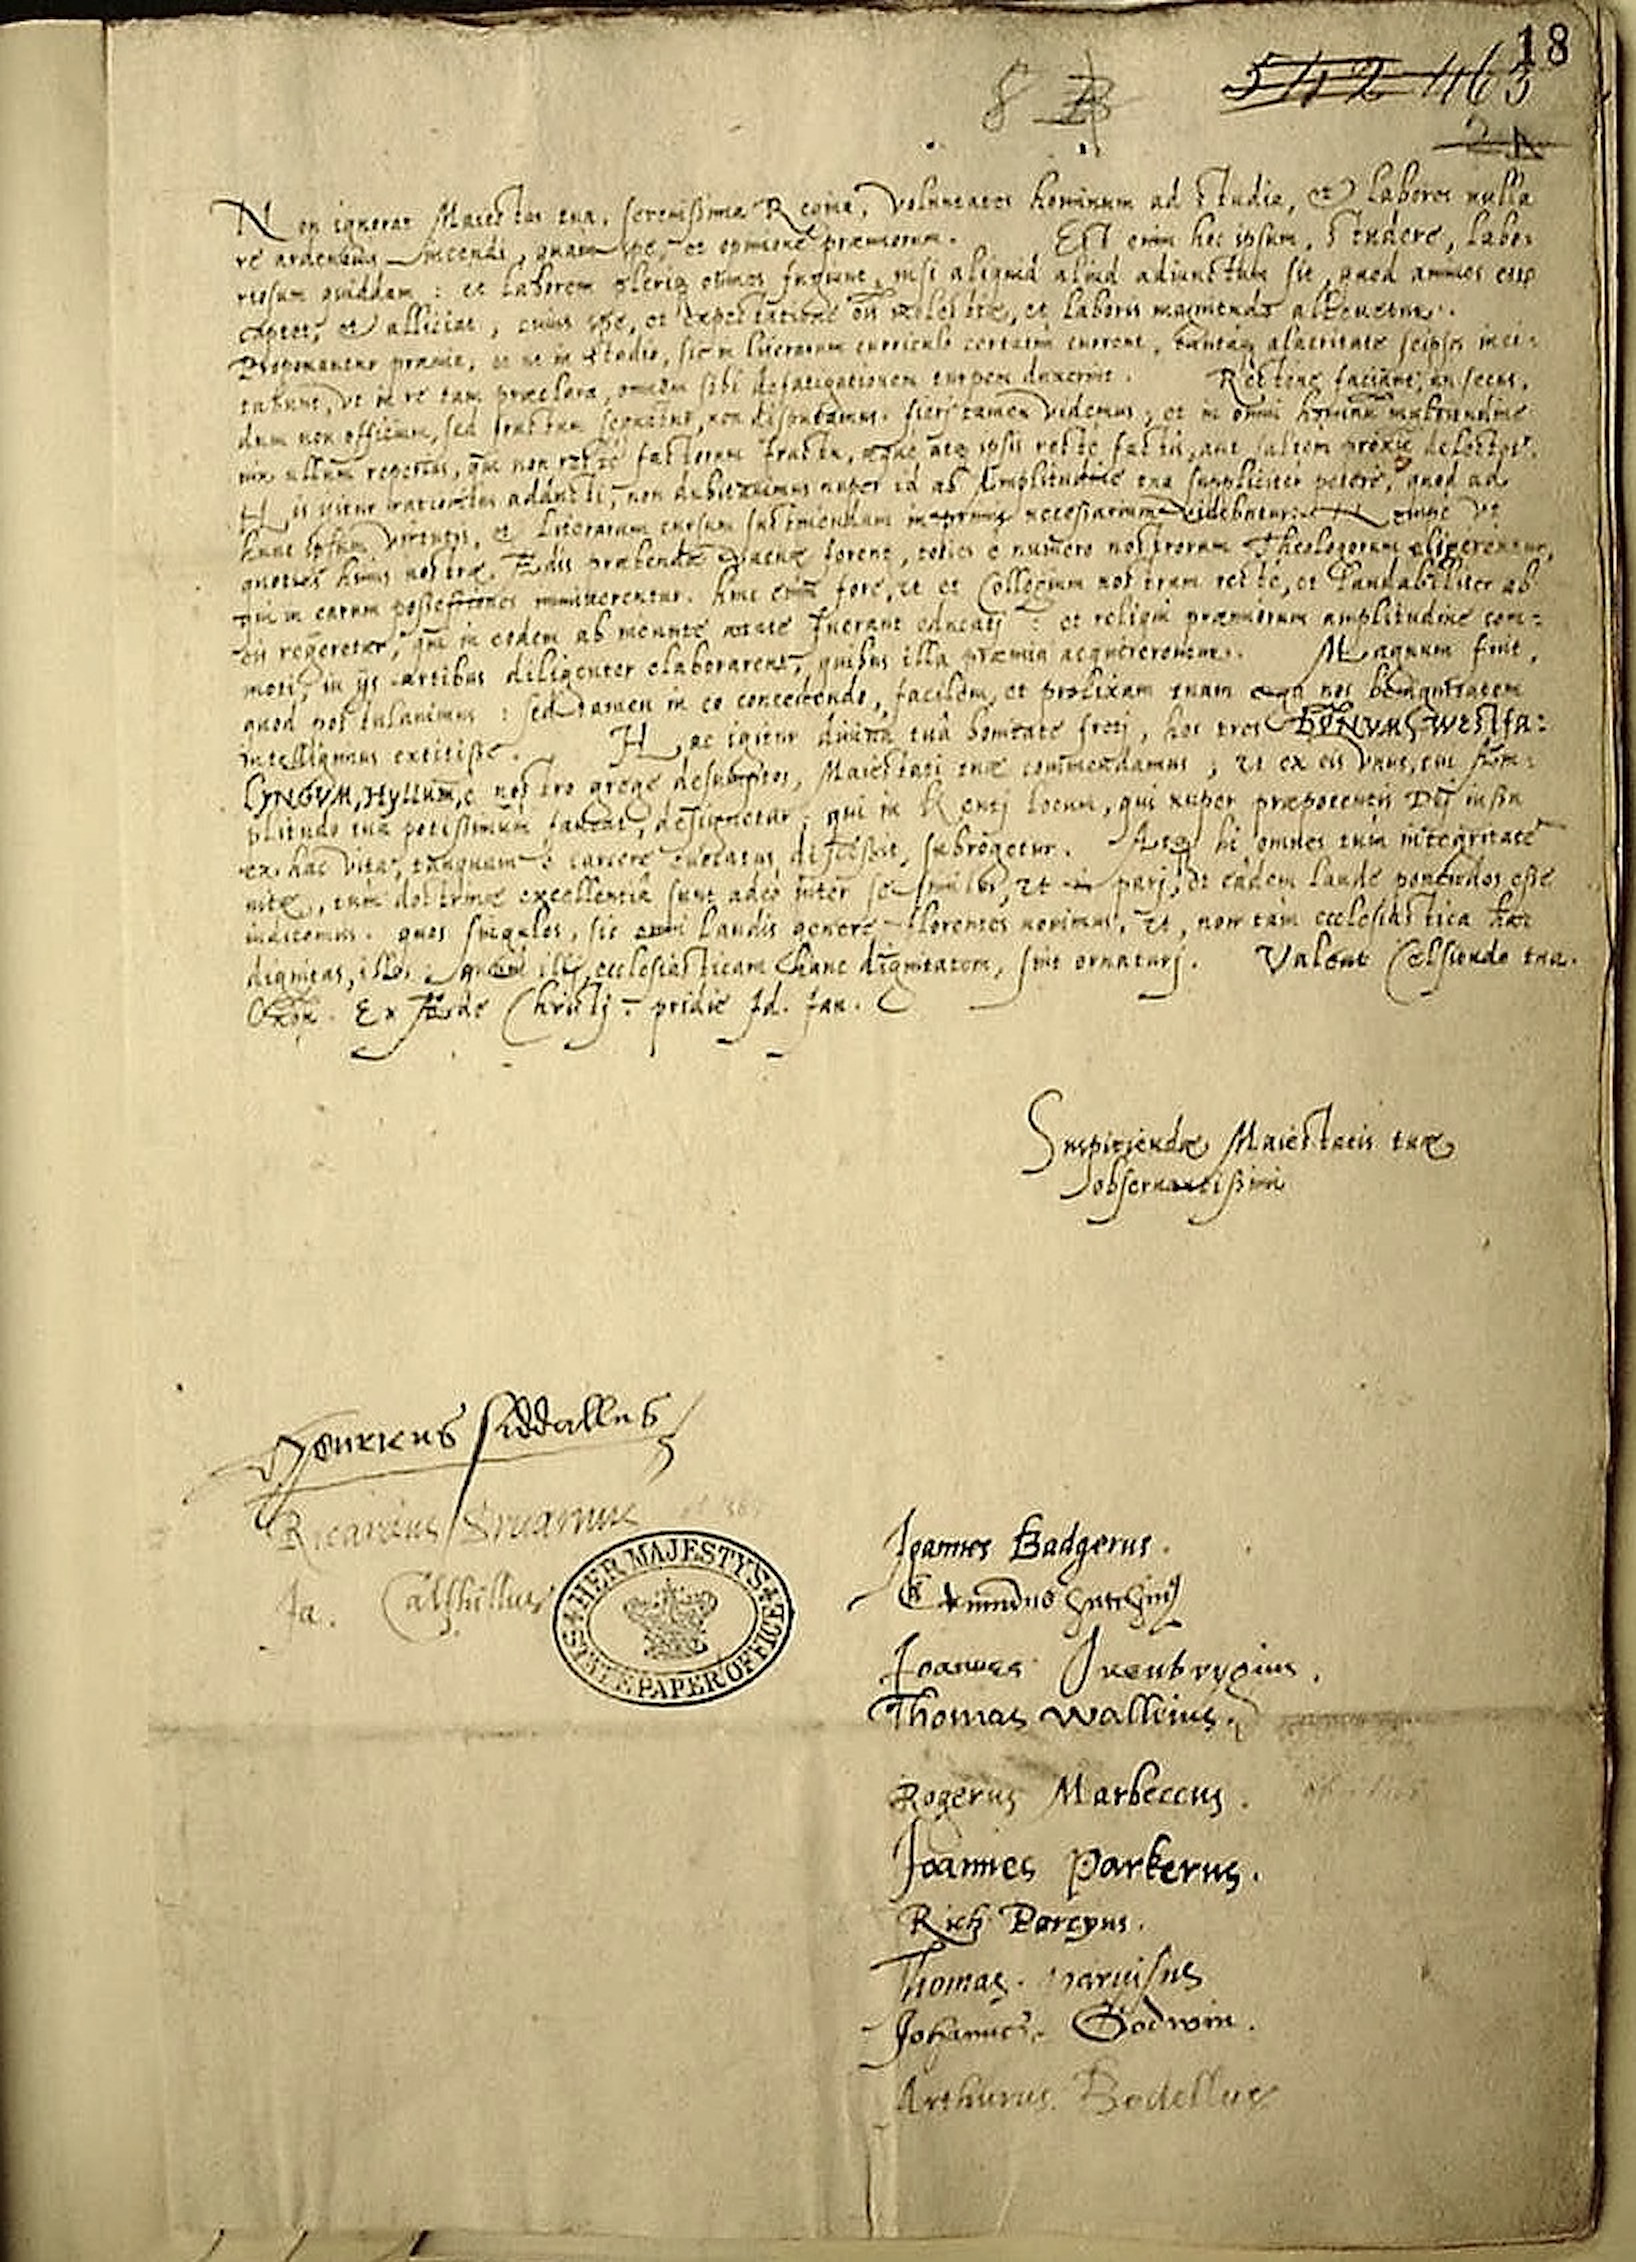 18
8
542 463
Non ignorat Maiestas tua, serenissima Regina, voluntates hominum ad studia, et labores nulla
re ardentius incendi, quam spe, et opinione præmiorum. Est enim hoc ipsum, studere, labo-
riosum quiddam : et laborem pleriq omnes fugiunt, nisi aliquid aliud adiunctum sit, quod animos eorū
captet, et alliciat, cuius spe, et expectatione oīs molestia, et laboris magnitudo alleuetur.
Proponantur præmia, et ut in stadio, sic in literarum curriculo certatim current, tantaq alacritate seipsos inci-
tabunt, ut in re tam præclara, omnem sibi defatigationem turpem duxerint. Recténe faciant, an secus,
dum non officium, sed fructum sequuntur, non disputamus. fieri tamen videmus, et in omni hominū multitudine
vix ullum reperias, qui non recte factorum fructu, æque atq ipsis recte factis, aut saltem proxime delectetr.
His igitur rationibus adducti, non dubitauimus nuper id ab Amplitudine tua suppliciter petere, quod ad
hunc ipsum virtutis, et literarum cursum subeundum inprimis necessarium videbatur: Nempe ut
quoties huius nostræ Ædis præbendæ vacuæ forent, toties e numero nostrorum Theologorum eligerentur,
qui in earum possessiones mitterentur. hinc enim fore, ut et Collegium nostrum recte, et laudabiliter ab
eis regeretur, qui in eodem ab ineunte ætate fuerant educati : et reliqui præmiorum amplitudine com-
moti, in ijs artibus diligenter elaborarent, quibus illa præmia acquirerentur. Magnum fuit,
quod postulauimus : sed tamen in eo concedendo, facilem, et prolixam tuam erga nos benignitatem
intelligimus extitisse. Hac igitur diuina tua bonitate freti, hos tres BONVM, WESTFA-
LYNGVM, HYLLUM, e nostro grege desumptos, Maiestati tuæ commendamus ; ut ex eis unus, cui Am-
plitudo tua potissimum faueat, designetur, qui in Kenti locum, qui nuper præpotentis Dei iussu
ex hac vita, tanquam e carcere euocatus discessit, subrogetur. Atq hi omnes tum integritate
vitæ, tum doctrinæ excellentia sunt adeo inter se similes, ut in pari, et eadem laude ponendos esse
iudicemus. quos singulos, sic omni laudis genere florentes nouimus, ut, non tam ecclesiastica hæc
dignitas, illos : quam illi, ecclesiasticam hanc dignitatem, sint ornaturi. Valeat Celsitudo tua.
Oxon. Ex Æde Christi pridie Id. Jan.
Suspiciendæ Maiestatis tuæ
obseruantissimi
Henricus Siddallus
Ricardus Bruarnus
Ja. Calfhillus
HER MAJESTY'S STATE PAPER OFFICE
Joannes Badgerus.
Edmundus
Joannes
Thomas Walleius.
Rogerus Marbeccus.
Joannes Parkerus.
Rich Parcyus.
Thomas
Johannes Godwin.
Arthurus Bedellus